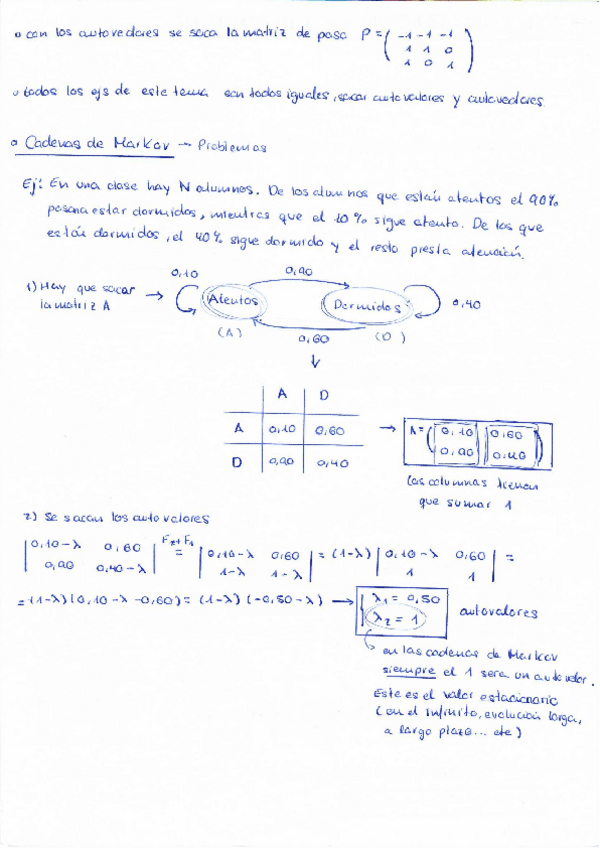 o con los autovectores se saca la matriz de paso P = ( -1 -1 -1
1 1 0
1 0 1 )
o todos los ejs de este tema son todos iguales, sacar autovalores y autovectores.
o Cadenas de Markov → Problemas
Ej: En una clase hay N alumnos. De los alumnos que están atentos el 90%
pasan a estar dormidos, mientras que el 10% sigue atento. De los que
están dormidos, el 40% sigue dormido y el resto presta atención.
0,10 0,90
1) Hay que sacar → Atentos Dormidos 0,40
la matriz A
(A) 0,60 (D)
↓
A D
A 0,10 0,60 → A = ( 0,10 0,60
D 0,90 0,40 0,90 0,40 )
las columnas tienen
que sumar 1
2) Se sacan los autovalores
| 0,10-λ 0,60 | F2+F1 = | 0,10-λ 0,60 | = (1-λ) | 0,10-λ 0,60 | =
| 0,90 0,40-λ | | 1-λ 1-λ | | 1 1 |
= (1-λ)(0,10-λ-0,60) = (1-λ)(-0,50-λ) → { λ1 = 0,50 autovalores
λ2 = 1
en las cadenas de Markov
siempre el 1 sera un autovalor.
Este es el valor estacionario
(en el infinito, evolución larga,
a largo plazo... etc)